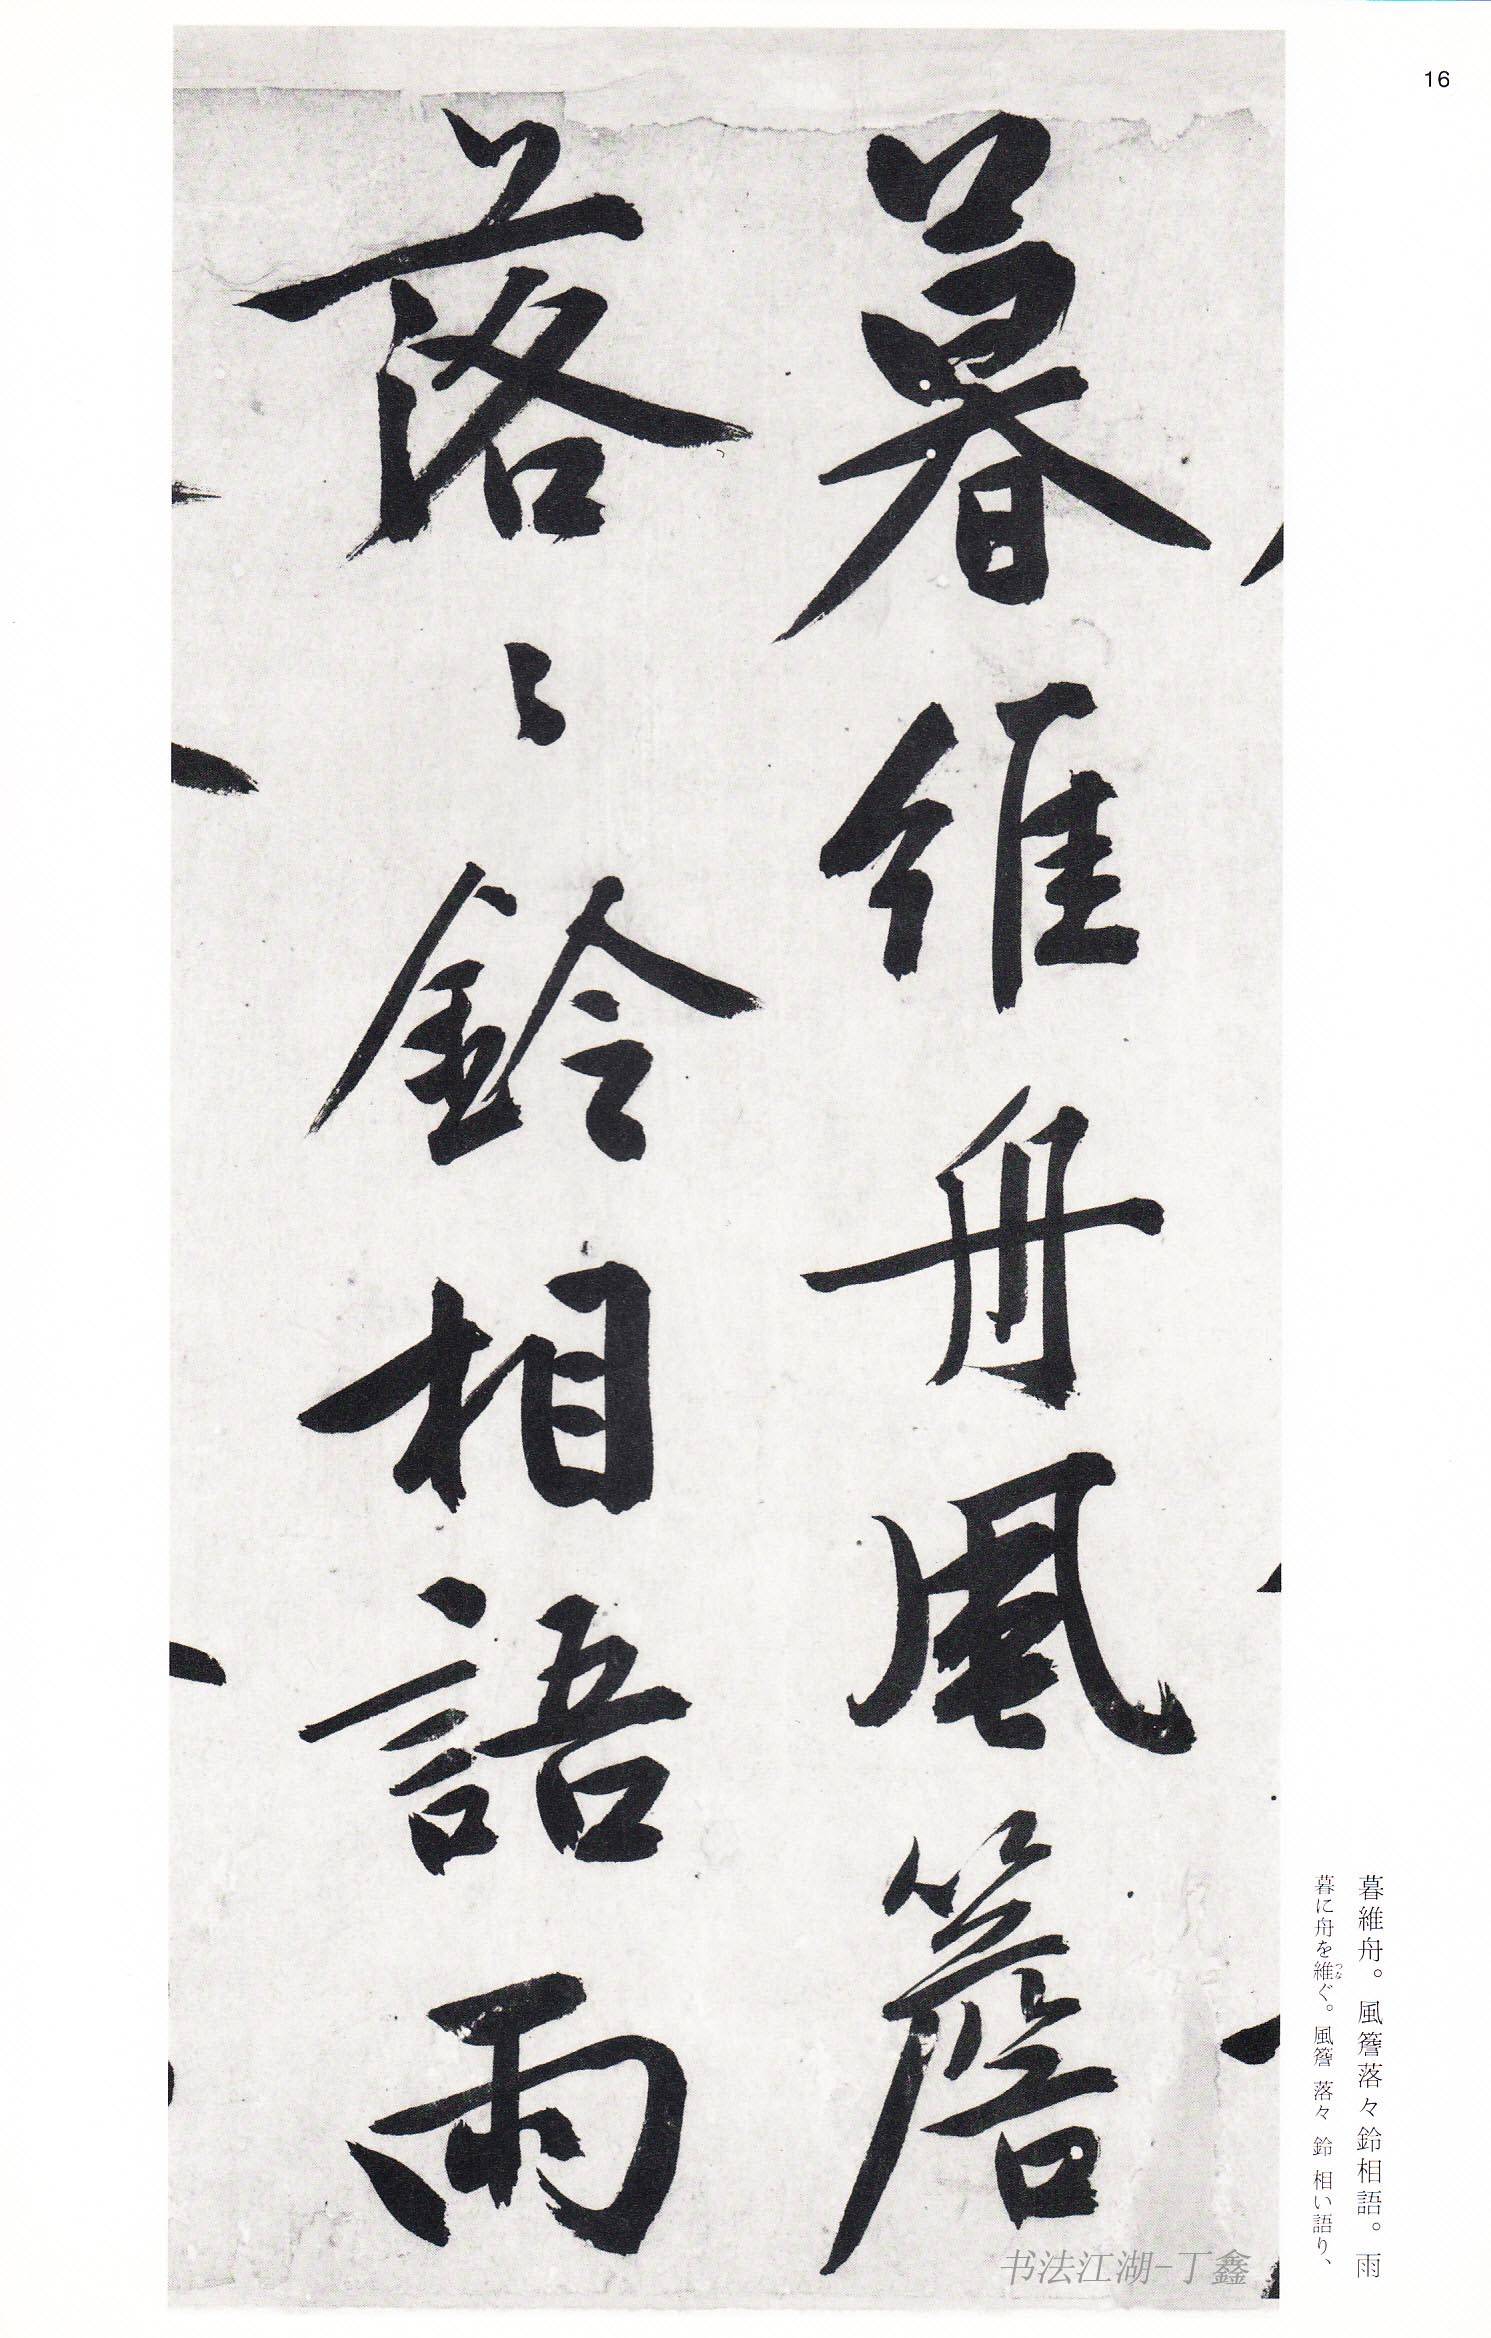 16
暮維舟風簷
落〻鈴相語雨
暮維舟。風簷落々鈴相語。雨
暮に舟を維ぐ。風簷 落々 鈴 相い語り、
つな
书法江湖-丁鑫